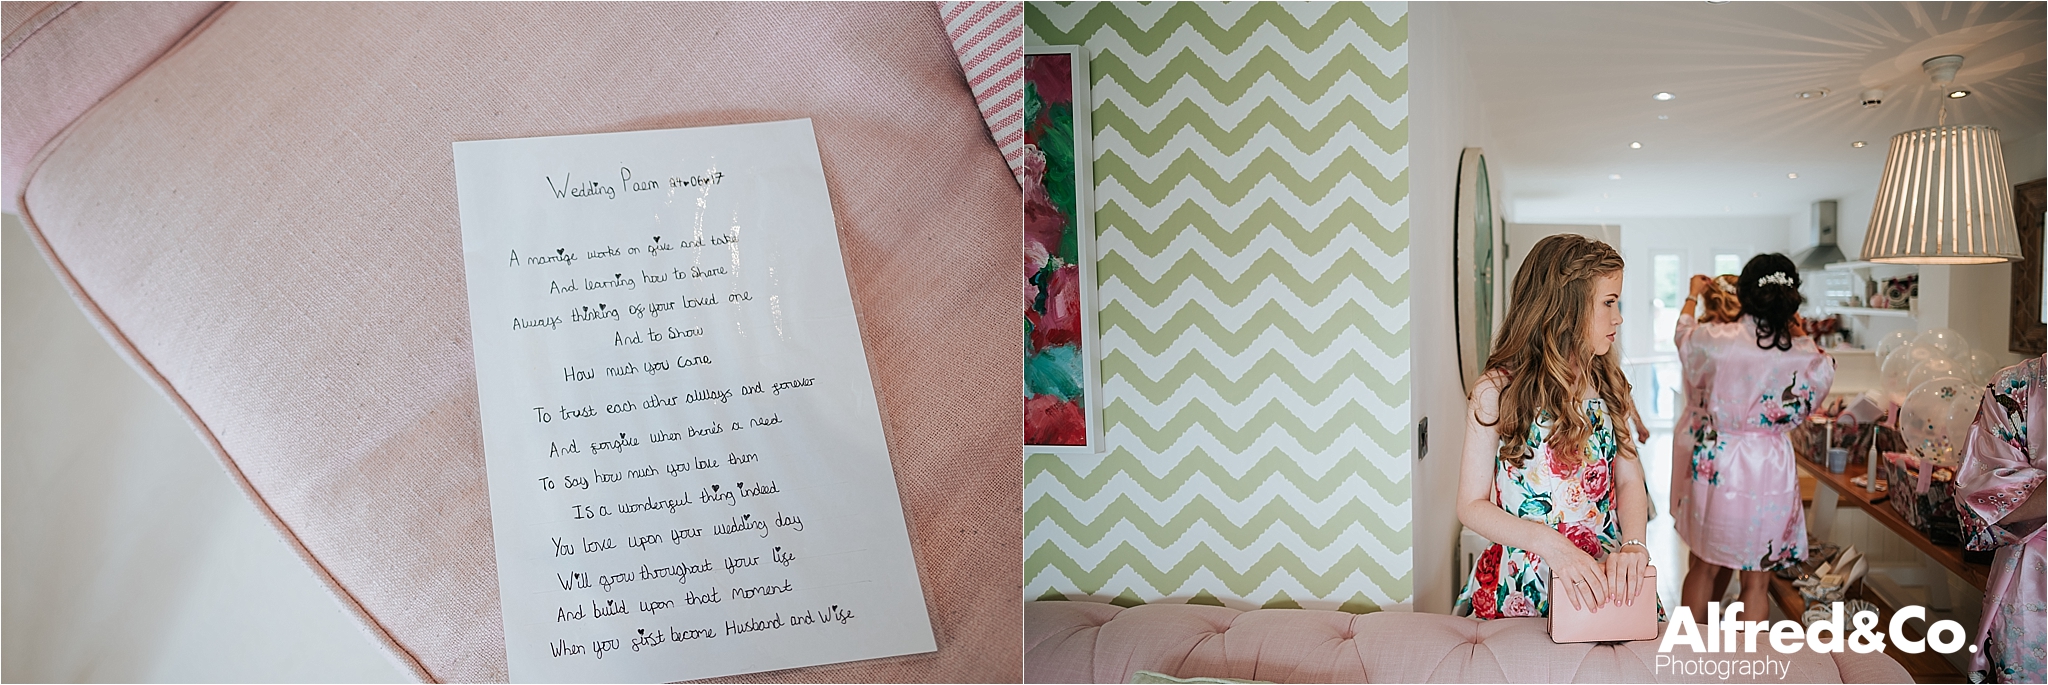 Wedding Poem 24♥06♥17
A marrige works on give and take
And learning how to Share
Always thinking of your loved one
And to Show
How much you care
To trust each other always and forever
And forgive when there's a need
To Say how much you love them
Is a wonderful thing indeed
You love upon your wedding day
Will grow throughout your life
And build upon that moment
When you first become Husband and Wife
Alfred&Co.
Photography